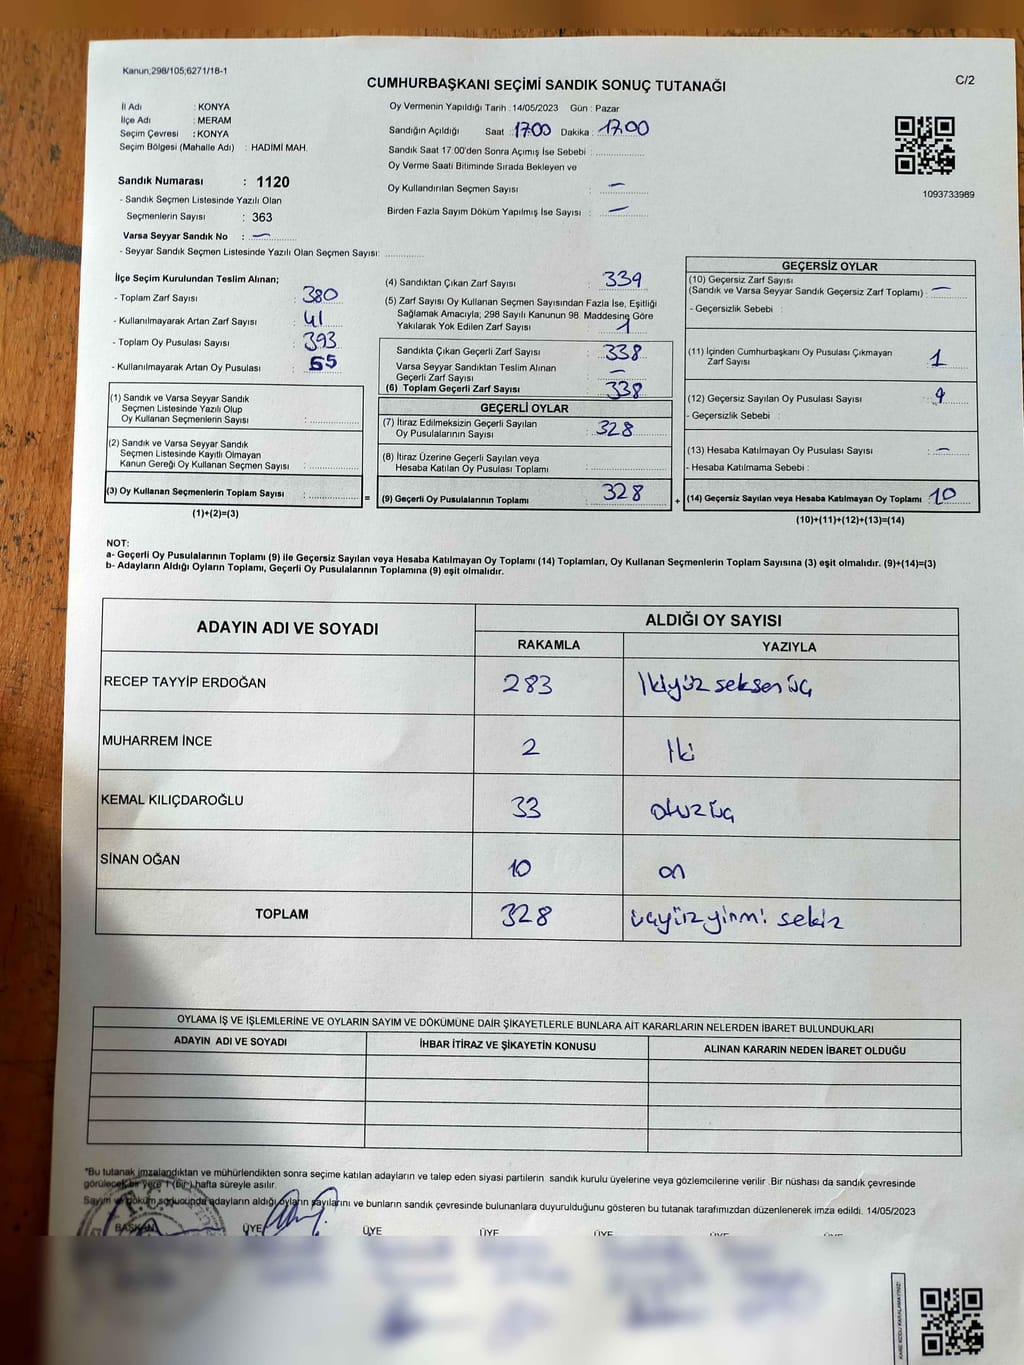 Kanun;298/105;6271/18-1
CUMHURBAŞKANI SEÇİMİ SANDIK SONUÇ TUTANAĞI
C/2
İl Adı : KONYA
İlçe Adı : MERAM
Seçim Çevresi : KONYA
Seçim Bölgesi (Mahalle Adı) : HADİMİ MAH.
Sandık Numarası : 1120
- Sandık Seçmen Listesinde Yazılı Olan
Seçmenlerin Sayısı : 363
Varsa Seyyar Sandık No : —
- Seyyar Sandık Seçmen Listesinde Yazılı Olan Seçmen Sayısı:
Oy Vermenin Yapıldığı Tarih : 14/05/2023 Gün : Pazar
Sandığın Açıldığı Saat : 17:00 Dakika : 17:00
Sandık Saat 17:00'den Sonra Açımış İse Sebebi :
Oy Verme Saati Bitiminde Sırada Bekleyen ve
Oy Kullandırılan Seçmen Sayısı : —
Birden Fazla Sayım Döküm Yapılmış İse Sayısı : —
1093733989
İlçe Seçim Kurulundan Teslim Alınan;
- Toplam Zarf Sayısı : 380
- Kullanılmayarak Artan Zarf Sayısı : 41
- Toplam Oy Pusulası Sayısı : 393
- Kullanılmayarak Artan Oy Pusulası : 55
(1) Sandık ve Varsa Seyyar Sandık
Seçmen Listesinde Yazılı Olup
Oy Kullanan Seçmenlerin Sayısı :
(2) Sandık ve Varsa Seyyar Sandık
Seçmen Listesinde Kayıtlı Olmayan
Kanun Gereği Oy Kullanan Seçmen Sayısı :
(3) Oy Kullanan Seçmenlerin Toplam Sayısı :
(1)+(2)=(3)
=
(4) Sandıktan Çıkan Zarf Sayısı : 339
(5) Zarf Sayısı Oy Kullanan Seçmen Sayısından Fazla İse, Eşitliği
Sağlamak Amacıyla; 298 Sayılı Kanunun 98. Maddesine Göre
Yakılarak Yok Edilen Zarf Sayısı : 1
Sandıkta Çıkan Geçerli Zarf Sayısı : 338
Varsa Seyyar Sandıktan Teslim Alınan
Geçerli Zarf Sayısı : —
(6) Toplam Geçerli Zarf Sayısı : 338
GEÇERLİ OYLAR
(7) İtiraz Edilmeksizin Geçerli Sayılan
Oy Pusulalarının Sayısı : 328
(8) İtiraz Üzerine Geçerli Sayılan veya
Hesaba Katılan Oy Pusulası Toplamı :
(9) Geçerli Oy Pusulalarının Toplamı : 328
+
GEÇERSİZ OYLAR
(10) Geçersiz Zarf Sayısı
(Sandık ve Varsa Seyyar Sandık Geçersiz Zarf Toplamı) : —
- Geçersizlik Sebebi :
(11) İçinden Cumhurbaşkanı Oy Pusulası Çıkmayan
Zarf Sayısı : 1
(12) Geçersiz Sayılan Oy Pusulası Sayısı : 9
- Geçersizlik Sebebi :
(13) Hesaba Katılmayan Oy Pusulası Sayısı : —
- Hesaba Katılmama Sebebi :
(14) Geçersiz Sayılan veya Hesaba Katılmayan Oy Toplamı : 10
(10)+(11)+(12)+(13)=(14)
NOT:
a- Geçerli Oy Pusulalarının Toplamı (9) ile Geçersiz Sayılan veya Hesaba Katılmayan Oy Toplamı (14) Toplamları, Oy Kullanan Seçmenlerin Toplam Sayısına (3) eşit olmalıdır. (9)+(14)=(3)
b- Adayların Aldığı Oyların Toplamı, Geçerli Oy Pusulalarının Toplamına (9) eşit olmalıdır.
ADAYIN ADI VE SOYADI
ALDIĞI OY SAYISI
RAKAMLA YAZIYLA
RECEP TAYYİP ERDOĞAN 283 İkiyüz seksen üç
MUHARREM İNCE 2 İki
KEMAL KILIÇDAROĞLU 33 otuz üç
SİNAN OĞAN 10 on
TOPLAM 328 üçyüz yirmi sekiz
OYLAMA İŞ VE İŞLEMLERİNE VE OYLARIN SAYIM VE DÖKÜMÜNE DAİR ŞİKAYETLERLE BUNLARA AİT KARARLARIN NELERDEN İBARET BULUNDUKLARI
ADAYIN ADI VE SOYADI İHBAR İTİRAZ VE ŞİKAYETİN KONUSU ALINAN KARARIN NEDEN İBARET OLDUĞU
*Bu tutanak imzalandıktan ve mühürlendikten sonra seçime katılan adayların ve talep eden siyasi partilerin sandık kurulu üyelerine veya gözlemcilerine verilir .Bir nüshası da sandık çevresinde
görülecek bir yere 1 (bir) hafta süreyle asılır.
Sayım ve döküm sonucunda adayların aldığı oyların sayılarını ve bunların sandık çevresinde bulunanlara duyurulduğunu gösteren bu tutanak tarafımızdan düzenlenerek imza edildi. 14/05/2023
BAŞKAN ÜYE ÜYE ÜYE ÜYE ÜYE ÜYE